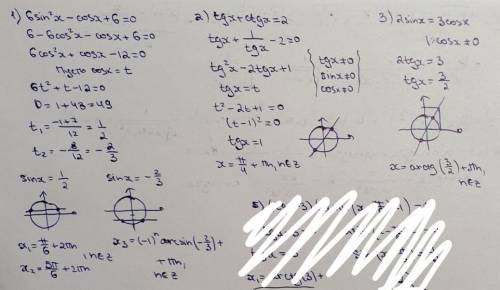 1) 6sin²x-cosx+6=0
6-6cos²x-cosx+6=0
6cos²x+cosx-12=0
Пусть cosx=t
6t²+t-12=0
D=1+48=49
t₁=-1+7/12=1/2
t₂=-8/12=-2/3
sinx=1/2 sinx=-2/3
x₁=π/6+2πn
x₂=5π/6+2πn, n∈z
x₃=(-1)ⁿarcsin(-2/3)+
+πn,
n∈z
2) tgx+ctgx=2
tgx+1/tgx-2=0
tg²x-2tgx+1
tgx=t
{tgx≠0
sinx≠0
cosx≠0}
t²-2t+1=0
(t-1)²=0
tgx=1
x=π/4+πn, n∈z
3) 2sinx=3cosx
|:cosx≠0
2tgx=3
tgx=3/2
x=arctg(3/2)+πn,
n∈z
5)